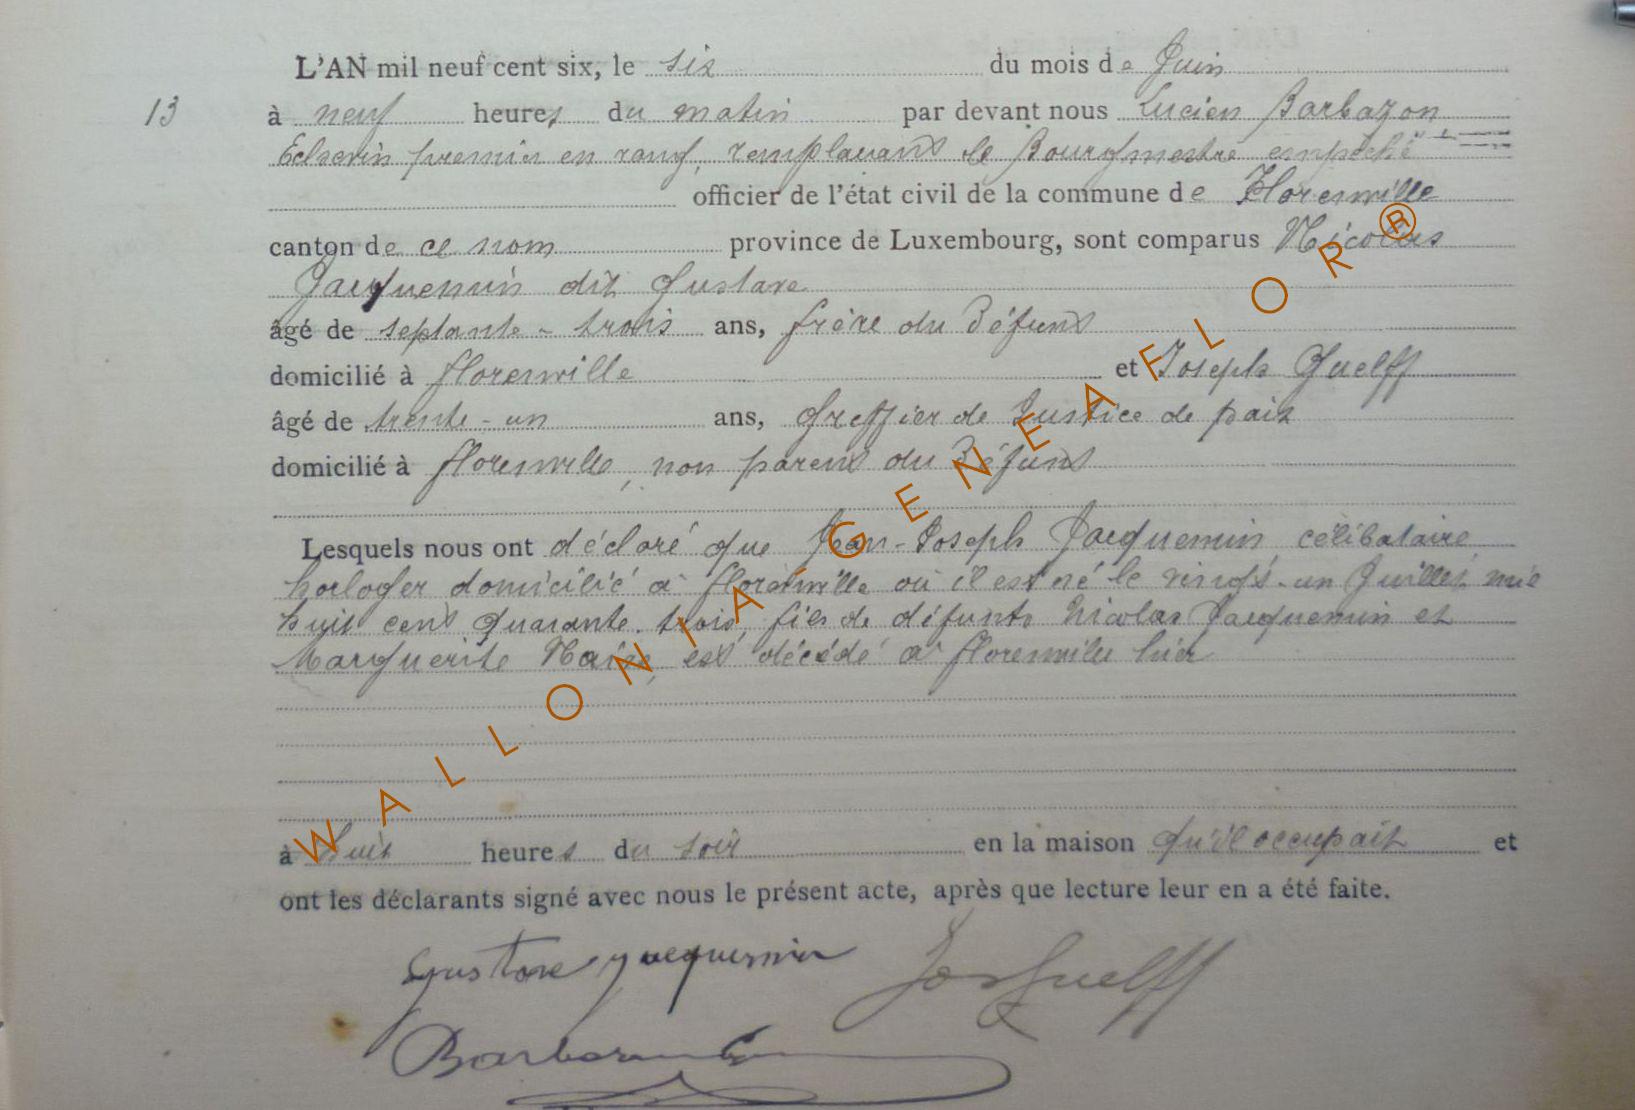 L'AN mil neuf cent six, le six du mois de Juin
13 à neuf heures du matin par devant nous Lucien Barbazon
Echevin premier en rang, remplaçant le Bourgmestre empêché
officier de l'état civil de la commune de Florenville
canton de ce nom province de Luxembourg, sont comparus Nicolas
Jacquemin dit Gustave
âgé de septante-trois ans, frère du Défunt
domicilié à florenville et Joseph Guelff
âgé de trente-un ans, Greffier de Justice de paix
domicilié à florenville, non parent du Défunt
Lesquels nous ont déclaré que Jean-Joseph Jacquemin, célibataire,
horloger domicilié à florenville où il est né le vingt-un Juillet mil
huit cent quarante-trois, fils de défunts Nicolas Jacquemin et
Marguerite est décédé à florenville hier
à huit heures du soir en la maison qu'il occupait et
ont les déclarants signé avec nous le présent acte, après que lecture leur en a été faite.
Gustave Jacquemin Jos Guelff
WALLONIA GENEAFLOR ®